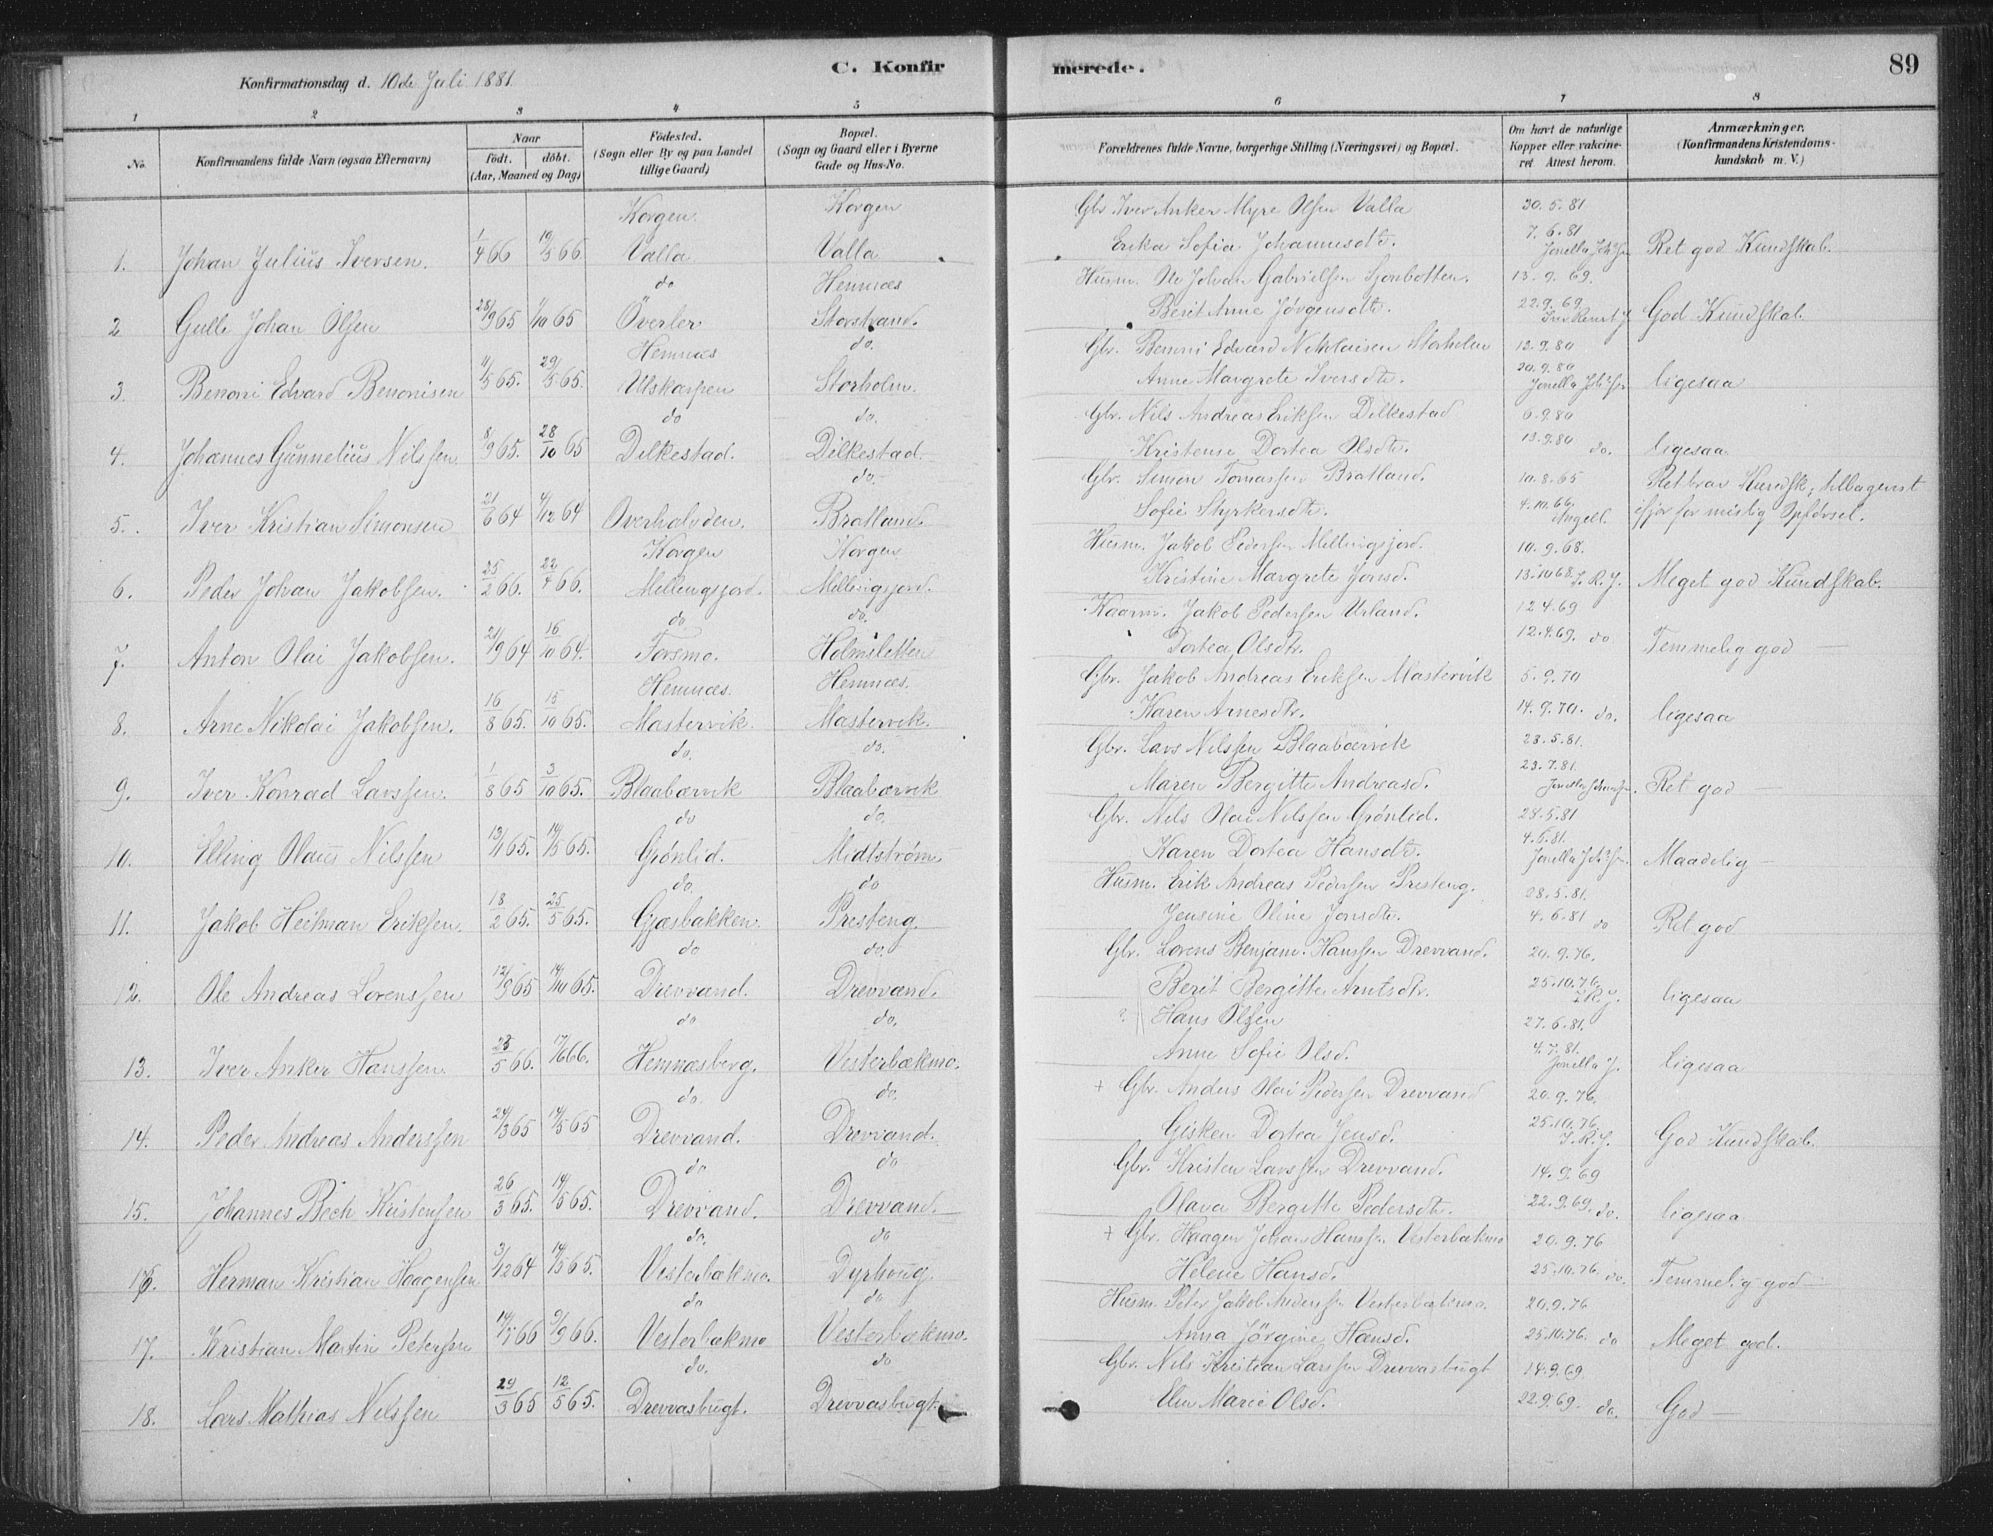 89
C. Konfirmerede.
Konfirmationsdag d. 10de Juli 1881.
1 2 3 4 5 6 7 8
No. Konfirmandens fulde Navn (ogsaa Efternavn) Naar født. døbt. (Aar, Maaned og Dag) Födested. (Sogn eller By og paa Landet tillige Gaard) Bopæl. (Sogn og Gaard eller i Byerne Gade og Hus-No. Forældrenes fulde Navne, borgerlige Stilling (Næringsvei) og Bopæl. Om havt de naturlige Kopper eller vakcineret. Attest herom. Anmærkninger. (Konfirmandens Kristendomskundskab m. V.)
Korgen Korgen Gbr. Iver Anker Myre Olsen Valla 30.5.81
1. Johan Julius Iversen. 1/4 66 19/5 66 Valla Valla Erika Sofia Johannesdtr. 7.6.81 Ret god Kundskab.
do Hemnæs Husm. Ole Johan Gabrielsen Sjonbotten. 13.9.69.
2 Gulle Johan Olsen 28/9 65 1/10 65 Överler Storstrand. Berit Anne Jørgensdtr. 22.9.69 God Kundskab.
Hemnæs do. Gbr. Benoni Edvard Nikolaisen Storholm 12.9.80
3. Benoni Edvard Benonisen 11/5 65. 29/5 65. Ulskarpen Storholm Anne Margrete Iversdtr. 20.9.80 ligesaa
do do. Gbr. Nils Andreas Eriksen Dilkestad 6.9.80
4. Johannes Gunnelius Nilssen 8/9 65. 28/10 65 Dilkestad. Dilkestad. Kristense Dortea Olsdtr. 13.9.80 do. ligesaa
do. Gbr. Simon Tomassen Bratland. 10.8.65 Ret brav Kundsk; tilbagevist
5. Iver Kristian Simonsen 21/6 64 4/12 64 Overhalvden. Bratland. Sofie Styrkersdtr. 4.10.66 Angell. ifjor for mislig Opførsel.
Korgen Korgen Husm. Jakob Pedersen Mellingsjord. 10.9.68.
6. Peder Johan Jakobsen. 25/2 66. 22/4 66. Mellingsjord. Mellingsjord. Kristine Margrete Jonsd. 13.10.68. I.R.J. Meget god Kundskab.
do do. Kaarm. Jakob Pedersen Urland. 12.4.69
7. Anton Olai Jakobsen. 21/9 64 16/10 64. Forsmo. Holmsletten Dortea Olsdtr. 12.4.69. do Temmelig god
Hemnæs. Hemnæs. Gbr. Jakob Andreas Eriksen Mastervik 5.9.70
8. Arne Nikolai Jakobsen. 16/8 65. 15/10 65. Mastervik. Mastervik. Karen Arnesdtr. 14.9.70. do. ligesaa
do. do. Gbr. Lars Nilssen Blaabærvik 28.5.81.
9. Iver Konrad Larssen. 1/8 65 3/10 65. Blaabærvik Blaabærvik Maren Bergitte Andreasd. 23.7.81. Ret god
do do. Gbr. Nils Olai Nilssen Grönlid. 28.5.81
10. Elling Olaus Nilssen 13/1 65. 14/5 65. Grønlid. Midtstrøm Karen Dortea Hansdtr. 4.6.81. Maadelig
do. do Husm. Erik Andreas Pedersen Presteng. 28.5.81.
11. Jakob Heitman Eriksen. 18/2 65. 25/5 65. Gjæsbakken Presteng Jensine Oline Jonsdtr. 4.6.81 do Ret god
do do. Gbr. Lorens Benjam. Hanssen Drevvand. 20.9.76.
12. Ole Andreas Lorenssen 12/9 65 14/10 65. Drevvand. Drevvand. Berit Bergitte Arntsdtr. 25.10.76. I.R.J. ligesaa
do do. ? Hans Olsen 27.6.81.
13. Iver Anker Hanssen 28/5 66. 17/6 66. Hemnæsberg. Vesterbækmo. Anne Sofie Olsd. 4.7.81. Jonella J. ligesaa
do. do. + Gbr. Anders Olai Pedersen Drevvand 20.9.76.
14. Peder Andreas Anderssen 24/3 65 14/5 65 Drevvand. Drevvand. Gisken Dortea Jensd. 25.10.76. I.R.J. God Kundskab.
do do Gbr. Kristen Larssen Drevvand. 14.9.69
15. Johannes Bech Kristensen 26/3 65. 14/5 65. Drevvand. Drevvand. Olava Bergitte Pedersdtr. 22.9.69. do. ligesaa
do. do + Gbr. Haagen Johan Hanssen Vesterbækmo 20.9.76
16. Herman Kristian Haagensen 3/12 64 14/5 65. Vesterbækmo. Dyrhoug Helene Hansd. 25.10.76. do. Temmelig god
do do Husm. Peter Jakob Andersen Vesterbækmo. 20.9.76
17. Kristian Martin Petersen 14/7 66 9/9 66. Vesterbækmo Vesterbækmo. Anna Jörgine Hansd. 25.10.76. do Meget god.
do. do Gbr. Nils Kristian Larssen Drevvasbugt 14.9.69.
18. Lars Mathias Nilssen 29/3 65 12/5 65. Drevvasbugt. Drevvasbugt. Elen Marie Olsd. 22.9.69. do. God